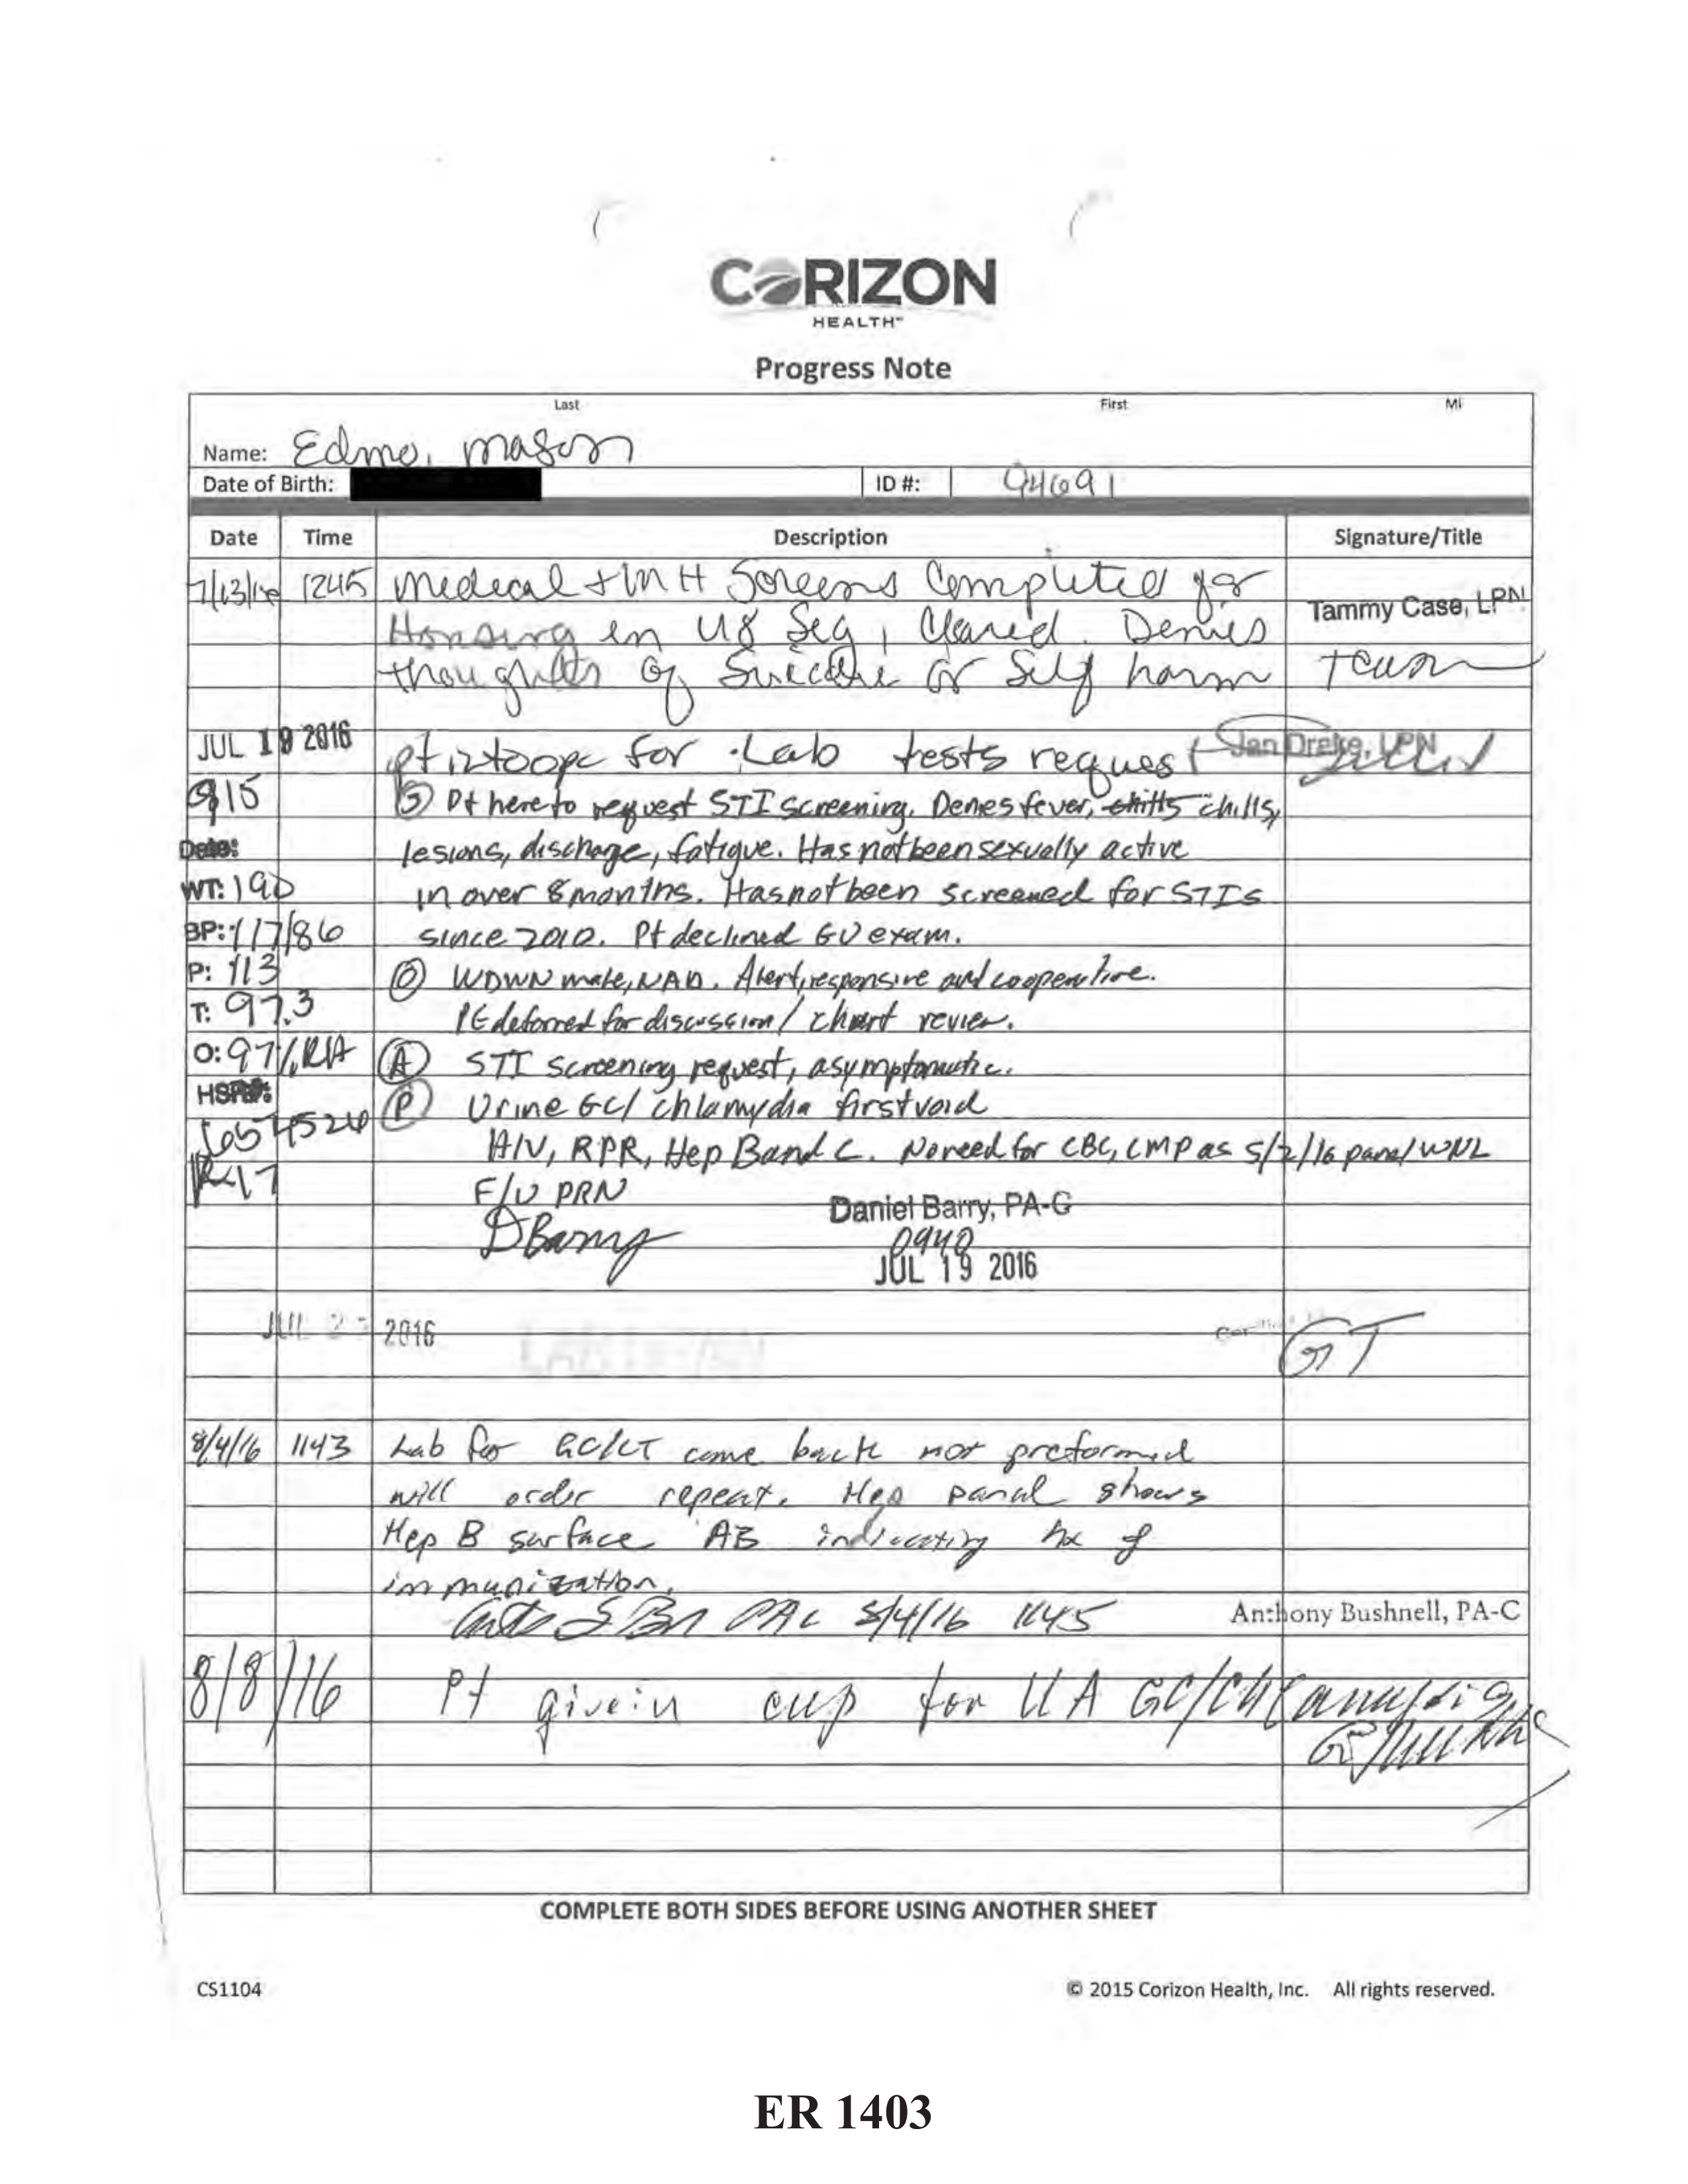 CORIZON
HEALTH
Progress Note
Last First MI
Name: Edmo, mason
Date of Birth: ID #: 94691
Date Time Description Signature/Title
7/13/16 1245 Medical + MH Screens Completed for
Tammy Case, LPN
Housing in U8 Seg, Cleared. Denies
thoughts of Suicide or Self harm
JUL 19 2016 pt for Lab tests request Jan Drake, LPN
915 (S) Pt here to request STI screening. Denies fever, chills,
Date: lesions, discharge, fatigue. Has not been sexually active
WT: 190 in over 8 months. Has not been screened for STIs
BP: 117/86 since 2010. Pt declined GU exam.
P: 113 (O) WDWN male, NAD. Alert, responsive and cooperative.
T: 97.3 PE deferred for discussion / chart review.
O: 97% RA (A) STI screening request, asymptomatic.
HSR#: (P) Urine GC/ chlamydia first void
HIV, RPR, Hep B and C. No need for CBC, CMP as 5/2/16 panel WNL
R-17 F/U PRN
DBarry Daniel Barry, PA-C
0940
JUL 19 2016
JUL 2 2016 GT
8/4/16 1143 Lab for GC/CT come back not preformed
will order repeat. Hep panal shows
Hep B surface AB indicating hx of
immunization.
PAC 8/4/16 1145 Anthony Bushnell, PA-C
8/8/16 Pt givein cup for UA GC/Chl
COMPLETE BOTH SIDES BEFORE USING ANOTHER SHEET
CS1104 © 2015 Corizon Health, Inc. All rights reserved.
ER 1403